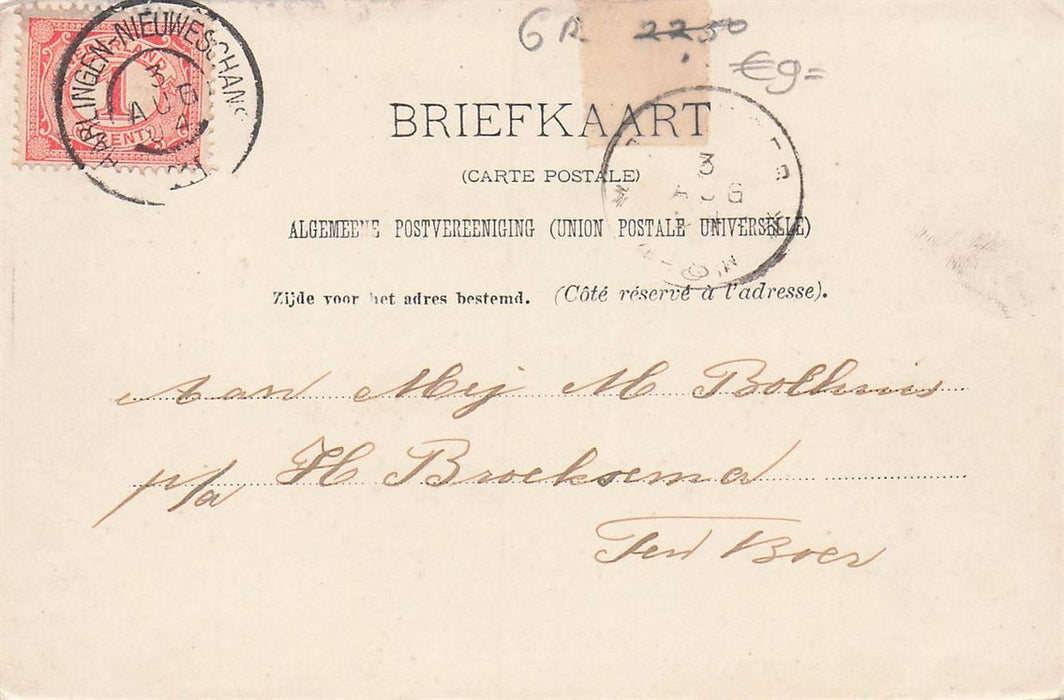 GR 2250
€9=
HARLINGEN-NIEUWESCHANS
3 AUG 04
1 CENT
BRIEFKAART
(CARTE POSTALE)
3 AUG
ALGEMEENE POSTVEREENIGING (UNION POSTALE UNIVERSELLE)
Zijde voor het adres bestemd. (Côté réservé à l'adresse).
Aan Mej M Bolhuis
p/a H Broeksema
Ten Boer